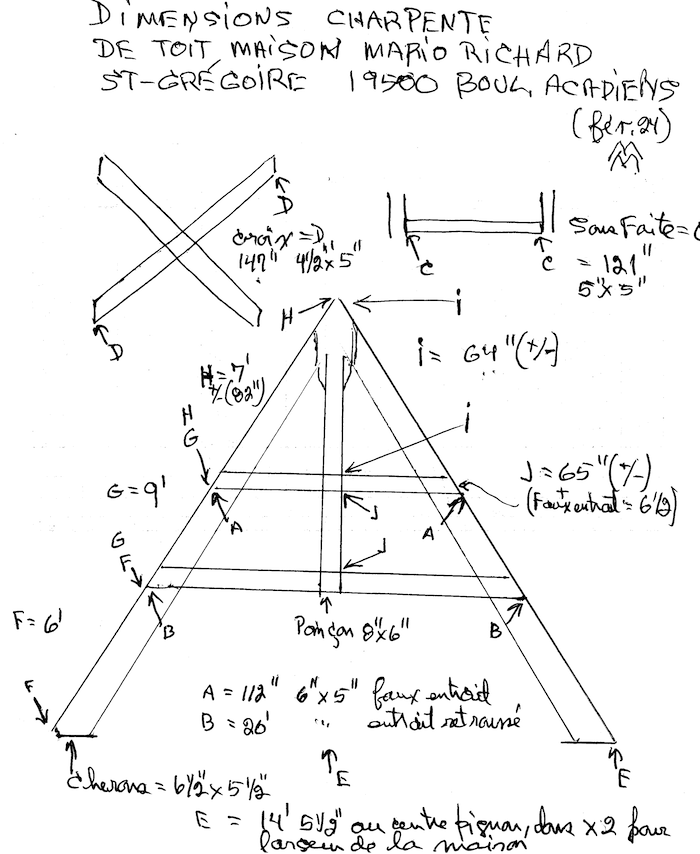 DIMENSIONS CHARPENTE
DE TOIT MAISON MARIO RICHARD
ST-GRÉGOIRE 19500 BOUL. ACADIENS
(fév. 24)
D
D
croix = D
147" 4 1/2" x 5"
C
C
Sous Faite = C
= 121"
5" x 5"
H
i
i = 64" (+/-)
H = 7'
+/- (82")
H
G
i
G = 9'
J = 65" (+/-)
(Faux entrait = 6 1/2)
A
J
A
G
F
J
F = 6'
B
Poinçon 8"x6"
B
F
A = 112" 6" x 5" faux entrait
B = 20' " entrait retroussé
E
E
Chevrons = 6 1/2" x 5 1/2"
E = 14' 5 1/2" au centre pignon, donc x 2 pour
largeur de la maison